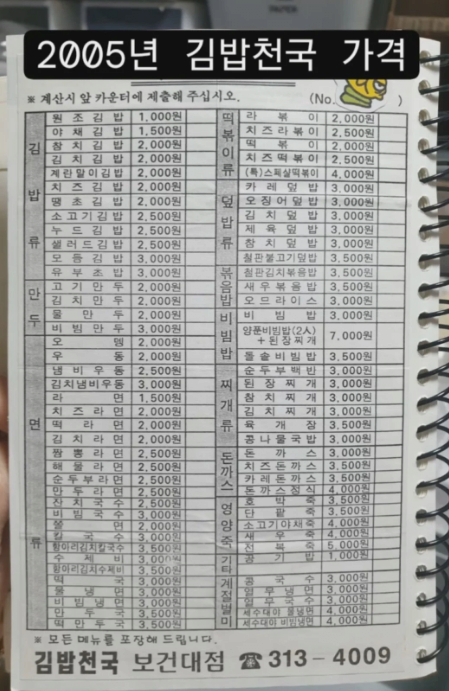 2005년 김밥천국 가격
※ 계산시 앞 카운터에 제출해 주십시오.
(No. )
김밥류
원조김밥 1,000원
야채김밥 1,500원
참치김밥 2,000원
김치김밥 2,000원
계란말이김밥 2,000원
치즈김밥 2,000원
땡초김밥 2,000원
소고기김밥 2,500원
누드김밥 2,500원
샐러드김밥 2,500원
모듬김밥 3,000원
유부초밥 3,000원
만두
고기만두 2,000원
김치만두 2,000원
물만두 2,000원
비빔만두 3,000원
면류
오뎅 2,000원
우동 2,000원
냄비우동 2,500원
김치냄비우동 3,000원
라면 1,500원
치즈라면 2,000원
떡라면 2,000원
김치라면 2,000원
짬뽕라면 2,500원
해물라면 2,500원
순두부라면 2,500원
만두라면 2,500원
잔치국수 2,500원
비빔국수 3,000원
쫄면 2,000원
칼국수 3,000원
항아리김치칼국수 3,500원
수제비 3,000원
항아리김치수제비 3,500원
떡국 3,000원
물냉면 3,000원
비빔냉면 3,000원
만두국 3,500원
떡만두국 3,500원
떡볶이류
라볶이 2,000원
치즈라볶이 2,500원
떡볶이 2,000원
치즈떡볶이 2,500원
(특)스페살떡볶이 4,000원
덮밥류
카레덮밥 3,000원
오징어덮밥 3,000원
김치덮밥 3,000원
제육덮밥 3,000원
참치덮밥 3,000원
철판불고기덮밥 3,500원
볶음밥
철판김치볶음밥 3,500원
새우볶음밥 3,500원
오므라이스 3,000원
비빔밥
비빔밥 3,000원
양푼비빔밥(2人)
+된장찌개 7,000원
돌솥비빔밥 3,500원
찌개류
순두부백반 3,000원
된장찌개 3,000원
참치찌개 3,000원
김치찌개 3,000원
육개장 3,500원
콩나물국밥 3,000원
돈까스
돈까스 3,000원
치즈돈까스 3,500원
카레돈까스 3,500원
돈까스정식 4,000원
영양죽
호박죽 3,500원
단팥죽 3,500원
소고기야채죽 4,000원
새우죽 4,000원
전복죽 5,000원
기타
공기밥 1,000원
계절별미
콩국수 3,000원
열무냉면 3,000원
열무국수 3,000원
세수대야 물냉면 4,000원
세수대야 비빔냉면 4,000원
※ 모든 메뉴를 포장해 드립니다.
김밥천국 보건대점 ☎ 313-4009